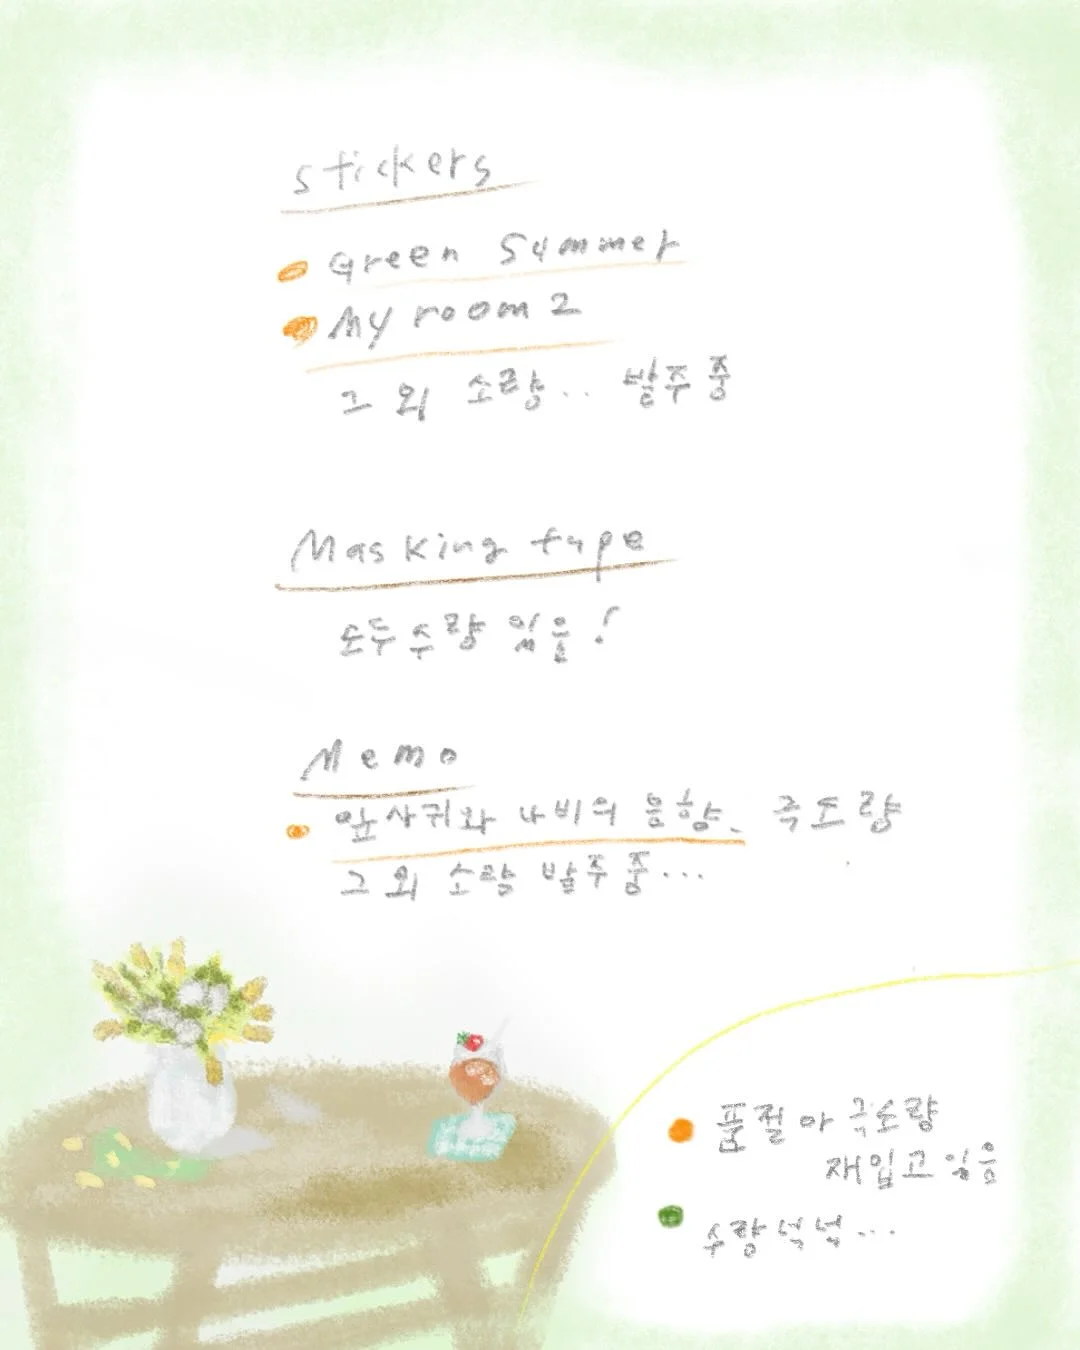 stickers
Green Summer
My room 2
그 외 소량.. 발주 중
Masking tape
모두 수량 있음!
Memo
앞사귀와 나비의 음향. 극도량
그 외 소량 발주 중...
품절 아 극소량
재입고 있음
수량 넉넉...